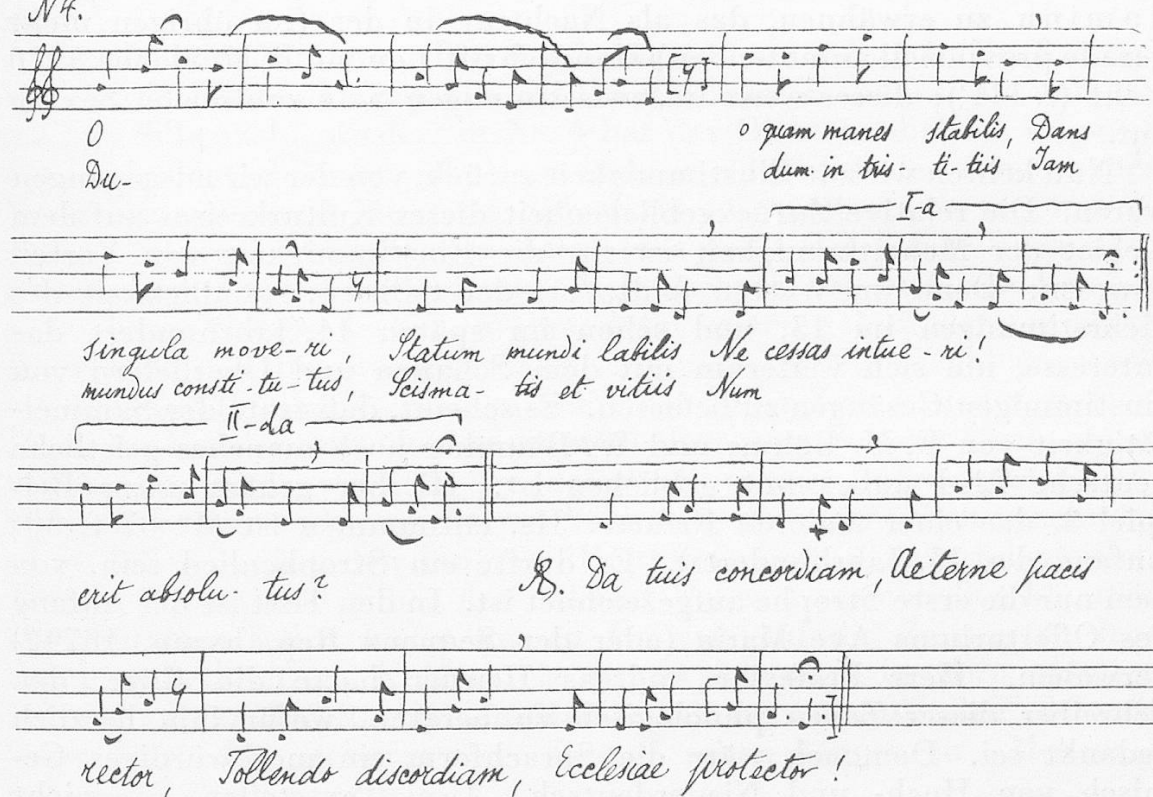 N4.
O o quam manes stabilis, Dans
Du- dum in tris ti-tiis Jam
I-a
singula move-ri, Statum mundi labilis Ne cessas intue-ri!
mundus consti-tu-tus, Scisma-tis et vitiis Num
II-da
erit absolu-tus? R. Da tuis concordiam, Aeterne pacis
rector, Tollendo discordiam, Ecclesiae protector!